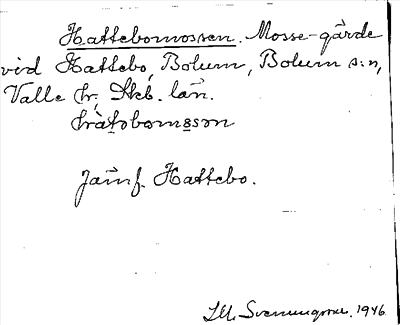 Hattebomossen. Mosse-gärde
vid Hattebo, Bolum, Bolum s:n,
Valle hr, Skb. län.
hàtsbomosən
Jämf. Hattebo.
Svenungsson. 1946.